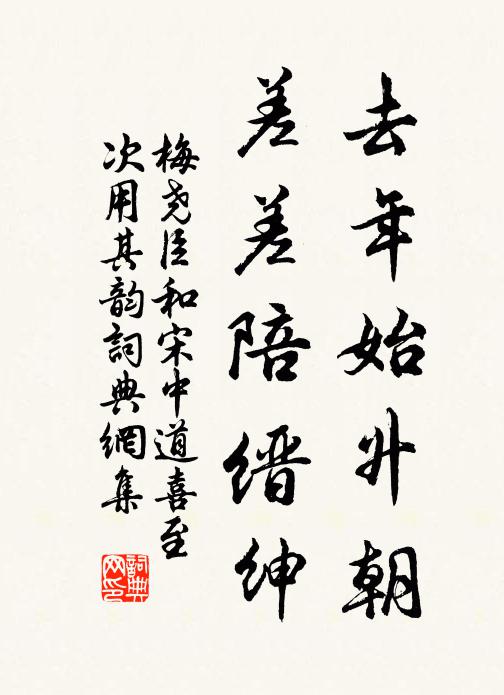 去年始升朝
差差陪缙绅
梅尧臣和宋中道喜至
次用其韵詞典網集
詞典网印